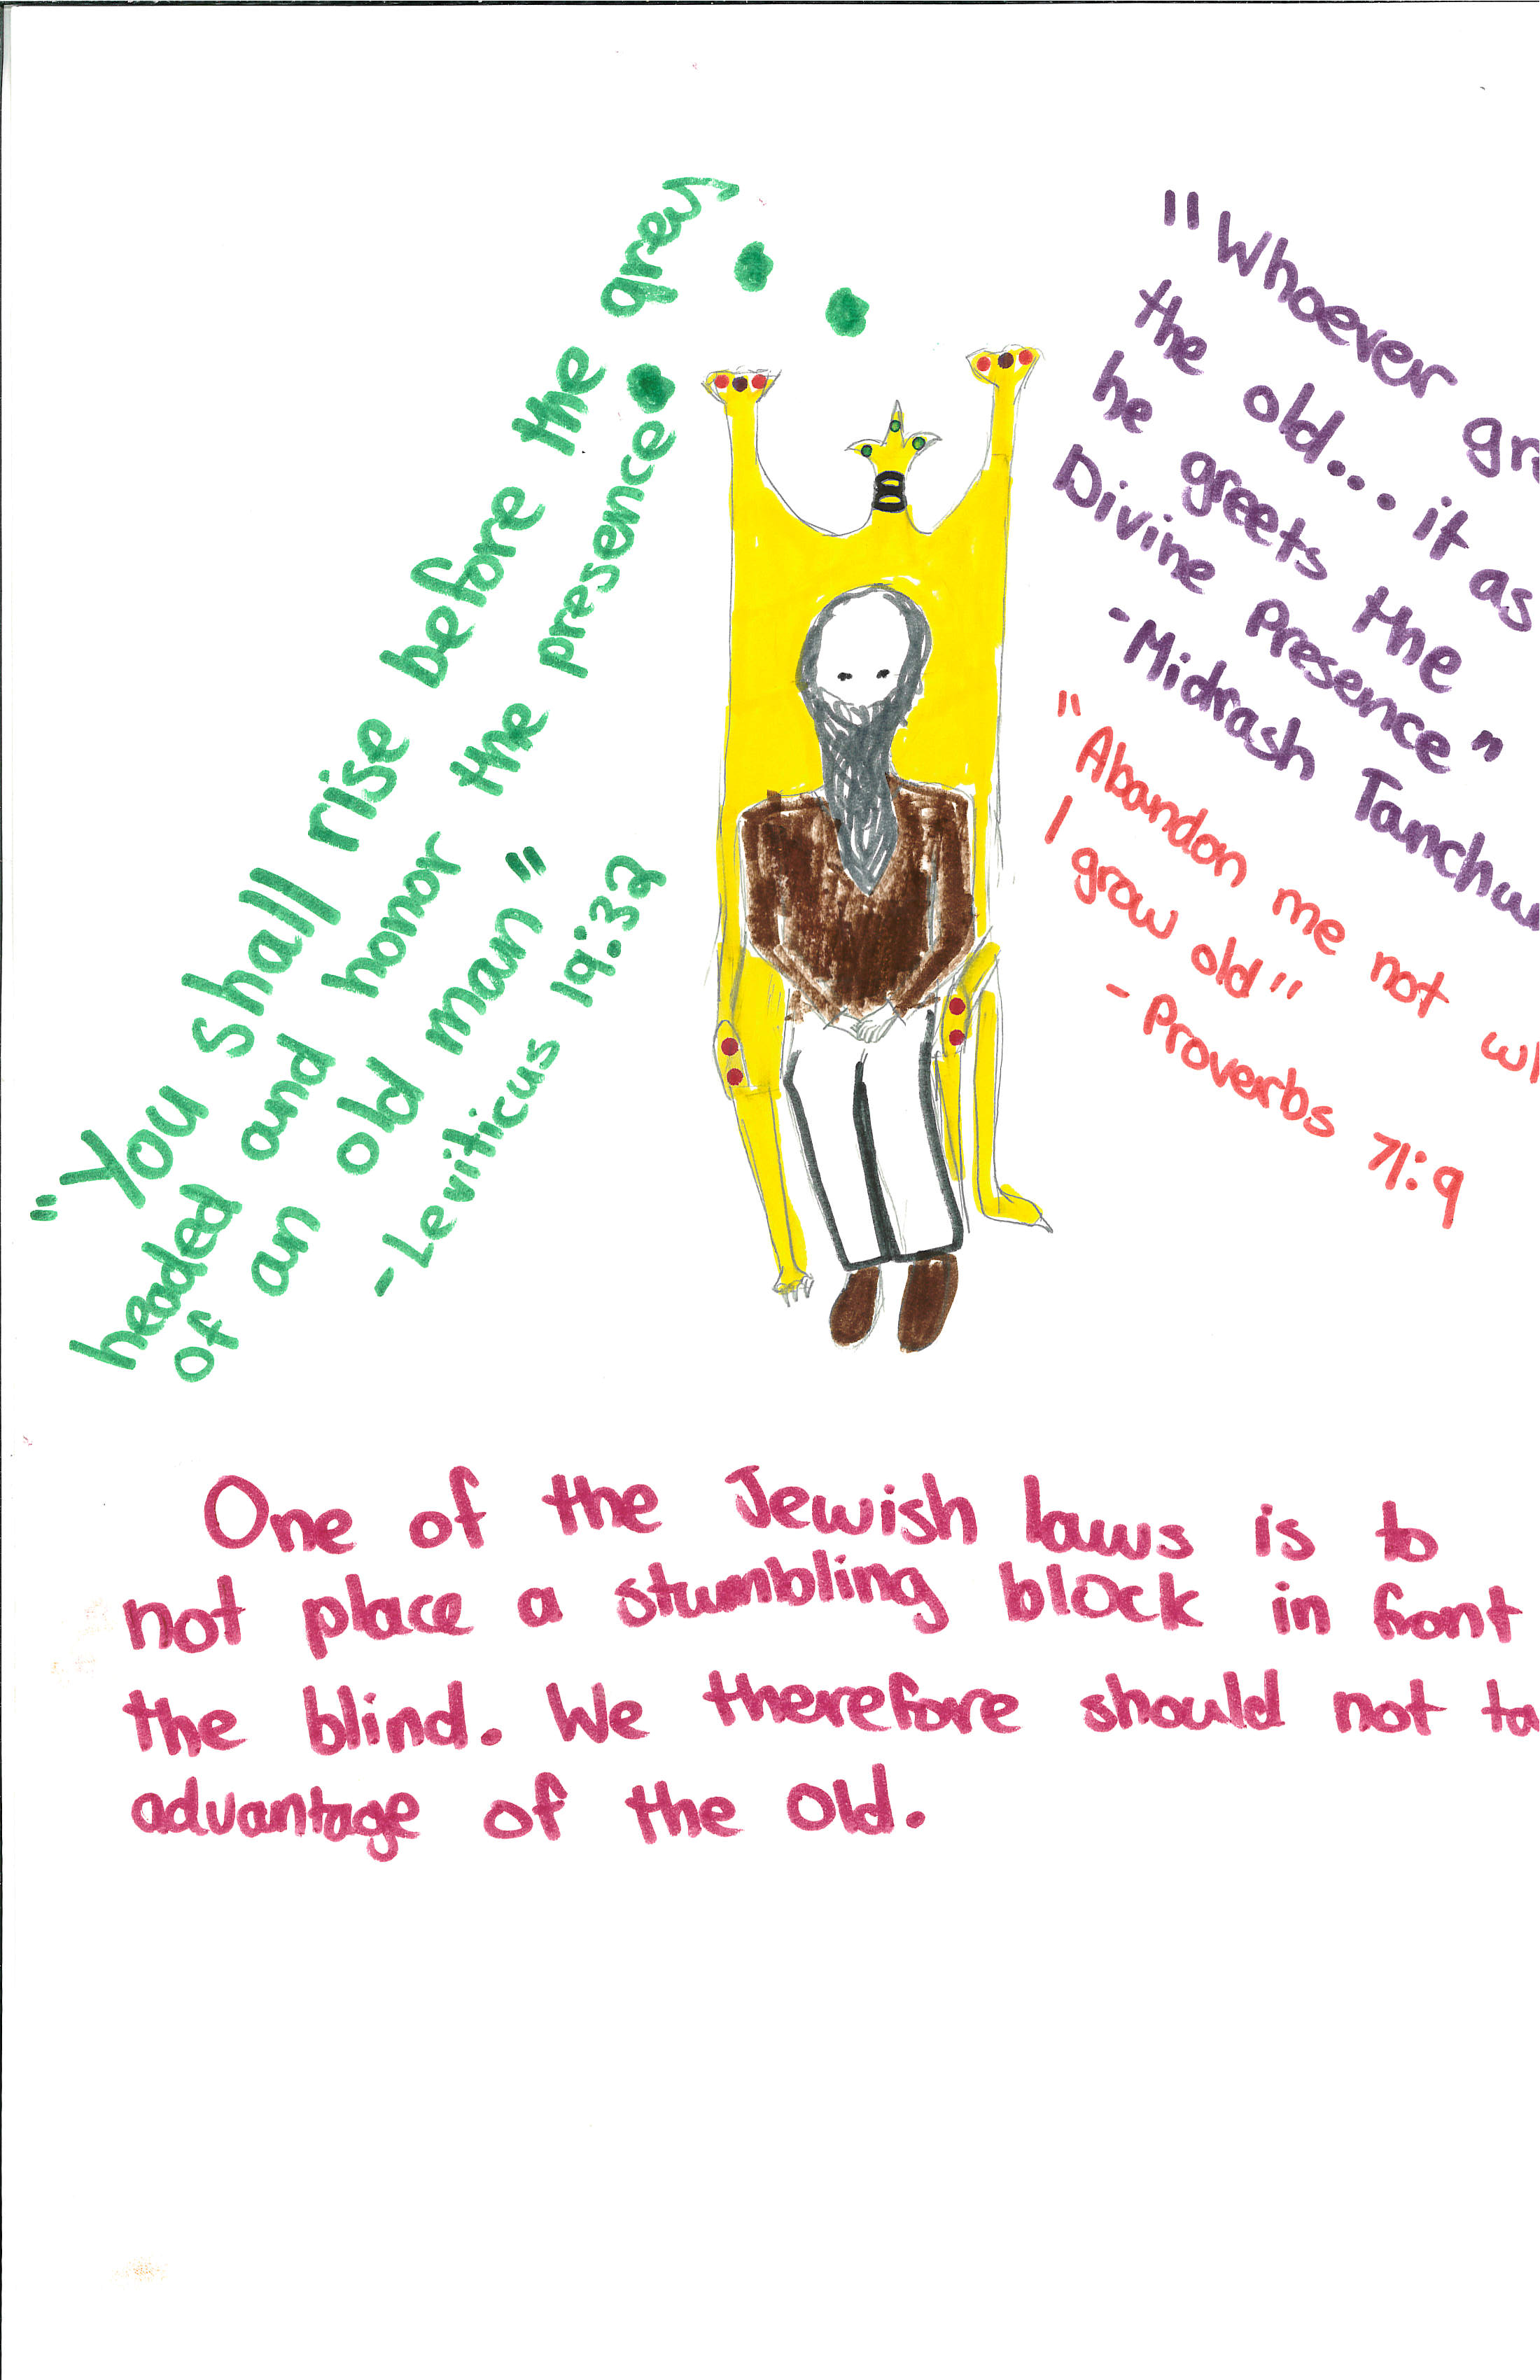 "You shall rise before the grey
headed and honor the presence
of an old man"
-Leviticus 19:32
"Whoever
the old... it as
he greets the
Divine Presence"
-Midrash
"Abandon me not
I grow old"
-Proverbs 71:9
One of the Jewish laws is to
not place a stumbling block in front
the blind. We therefore should not
advantage of the old.